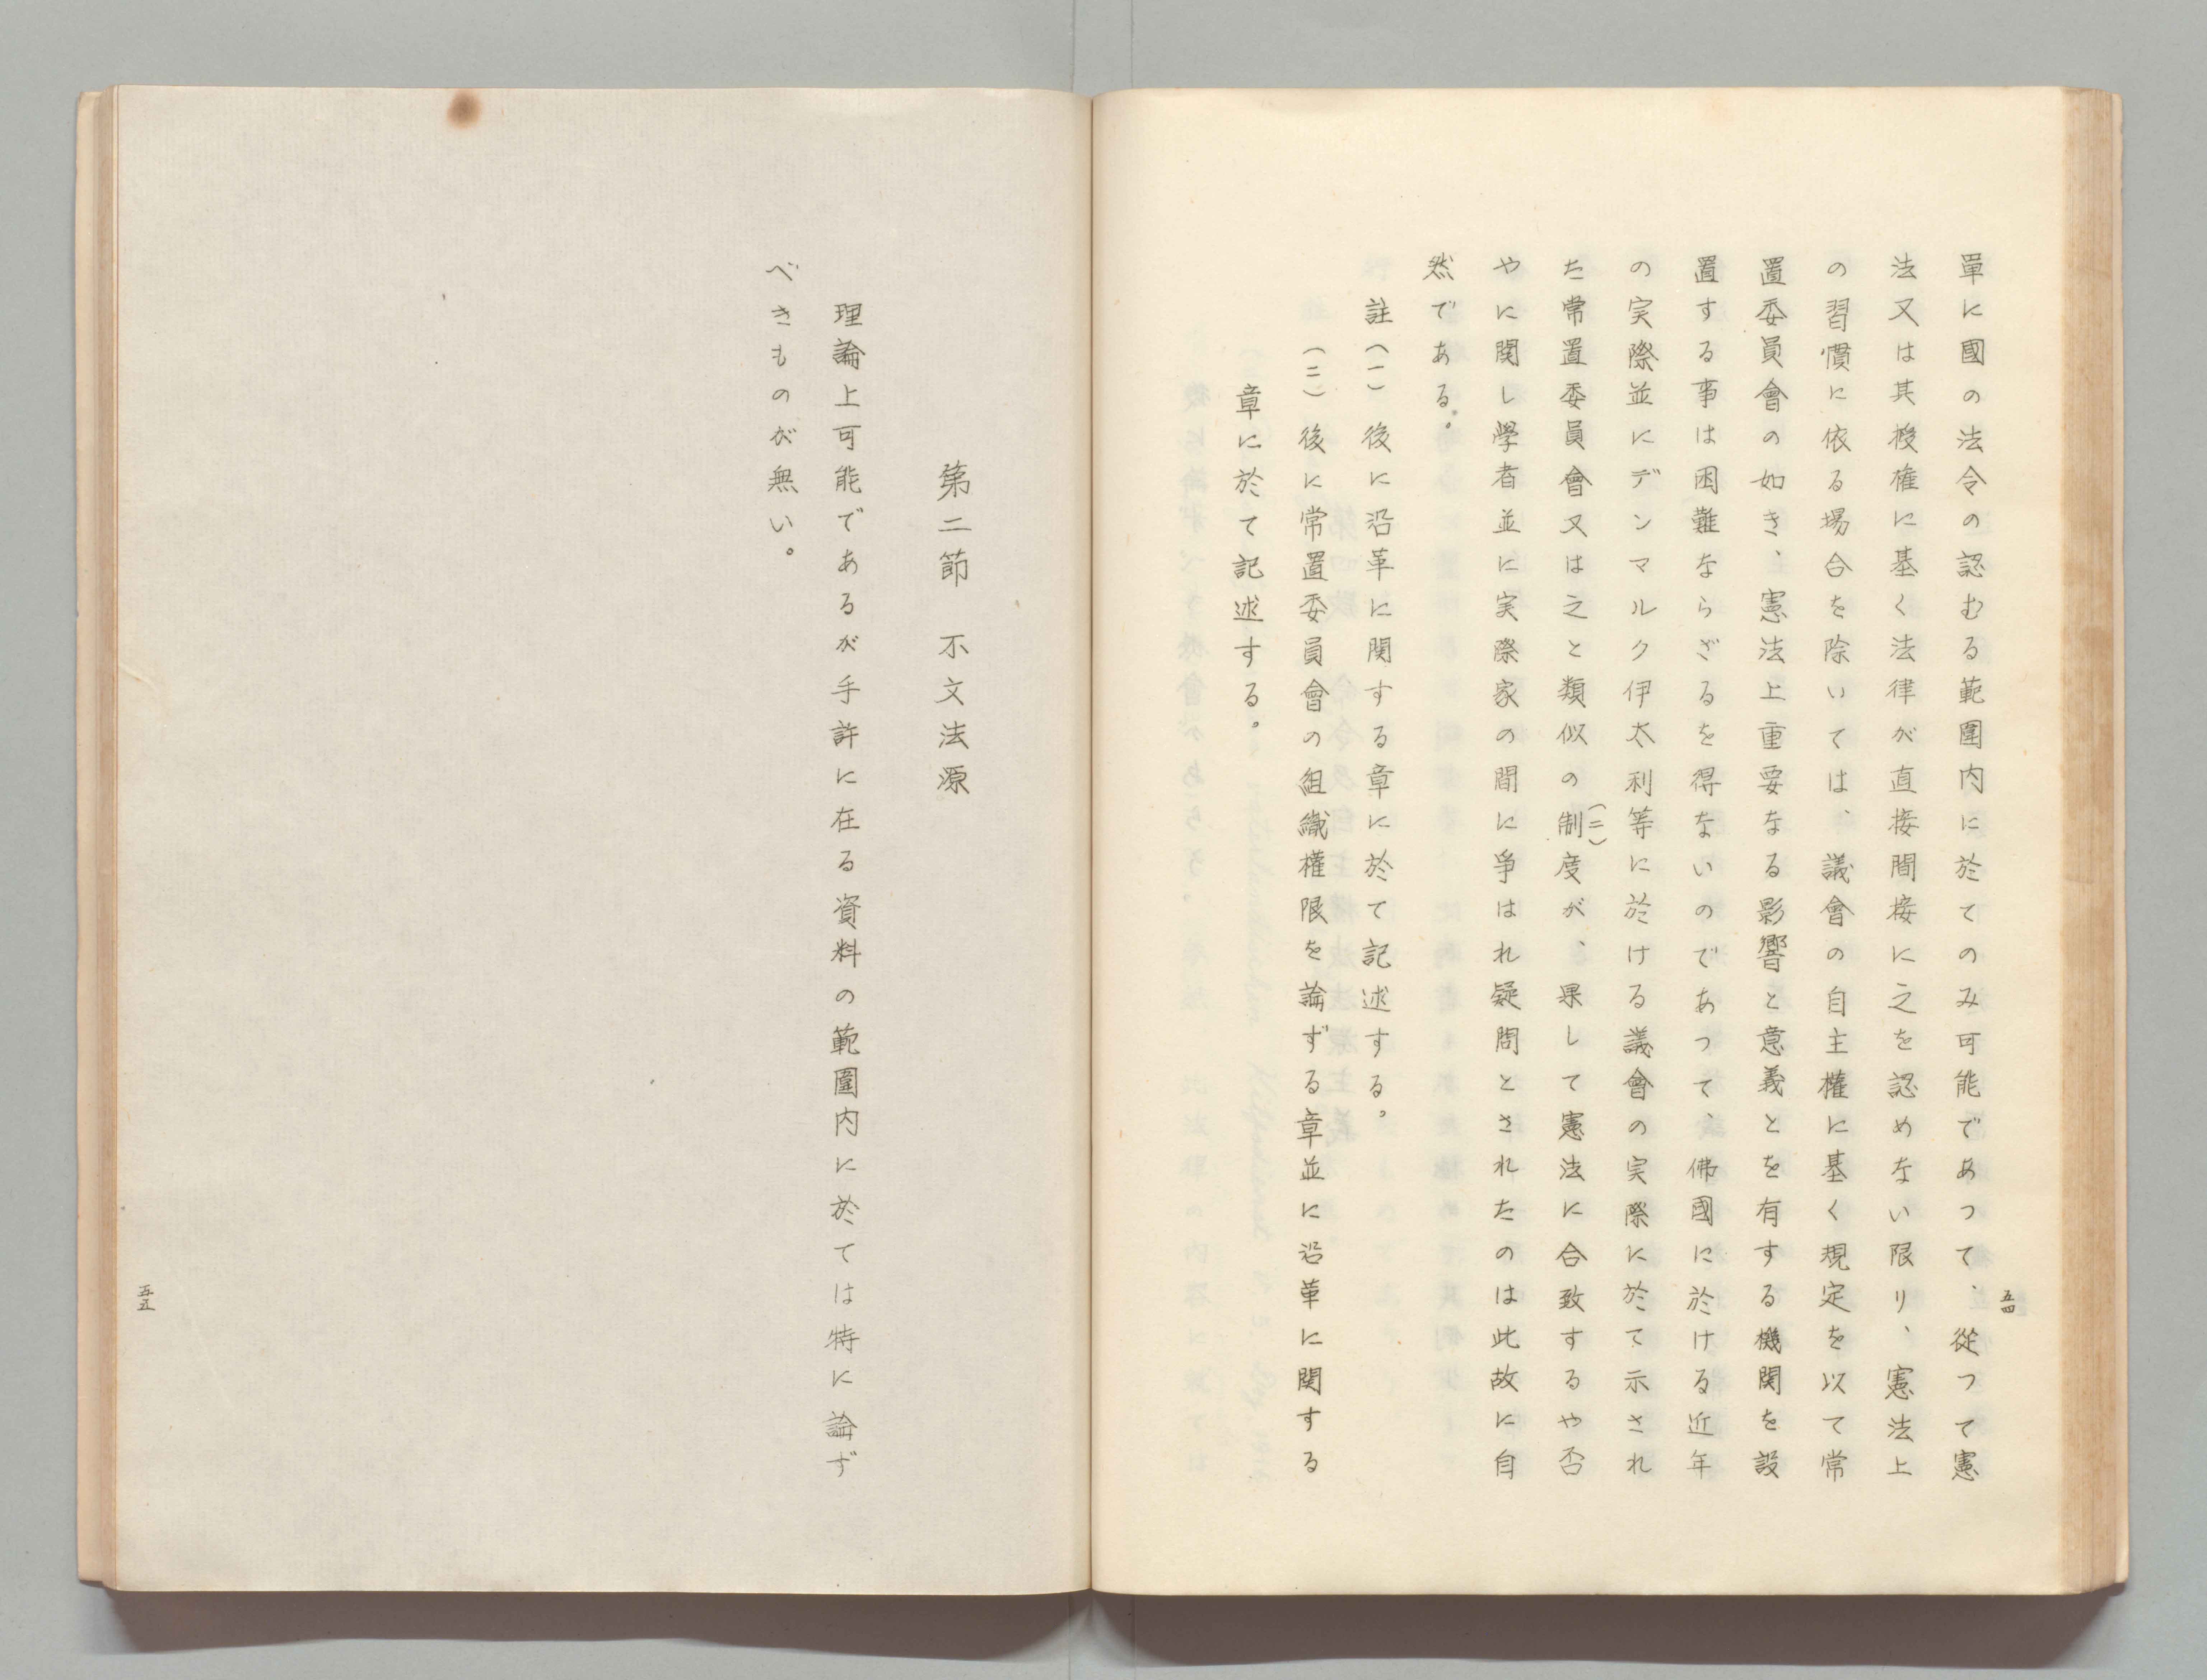 單に國の法令の認むる範圍内に於てのみ可能であつて、從つて憲
法又は其授權に基く法律が直接間接に之を認めない限り、憲法上
の習慣に依る場合を除いては、議會の自主權に基く規定を以て常
置委員會の如き、憲法上重要なる影響と意義とを有する機関を設
置する事は困難ならざるを得ないのであつて、佛國に於ける近年
の実際並にデンマルク伊太利等に於ける議會の実際に於て示され
た常置委員會又は之と類似の制度(二)が、果して憲法に合致するや否
やに関し學者並に実際家の間に爭はれ疑問とされたのは此故に自
然である。
註(一) 後に沿革に関する章に於て記述する。
(二) 後に常置委員會の組織權限を論ずる章並に沿革に関する
章に於て記述する。
五四
第二節 不文法源
理論上可能であるが手許に在る資料の範圍内に於ては特に論ず
べきものが無い。
五五